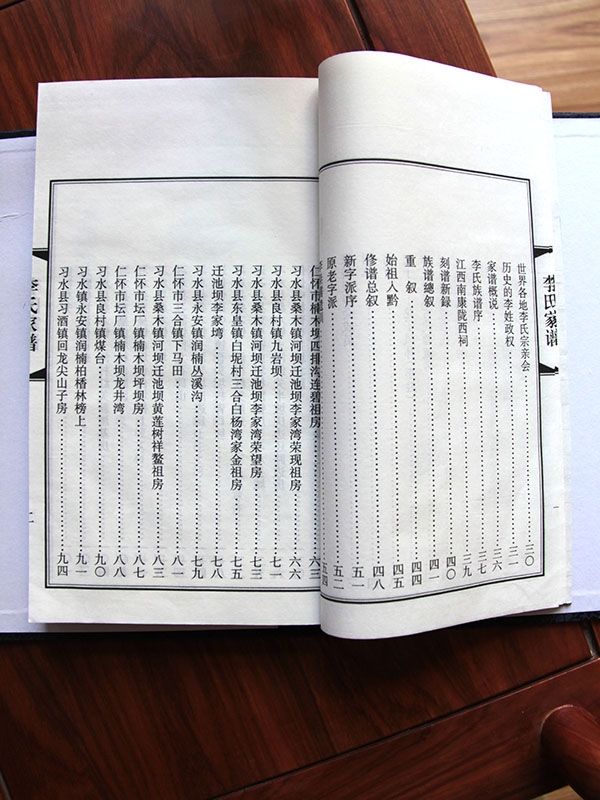 李氏家谱
世界各地李氏宗亲会……三〇
历史的李姓政权……三一
家谱概说……三六
李氏族谱序……三七
江西南康陇西祠……三九
刻谱新録……四〇
族谱總叙……四一
重 叙……四四
始祖入黔……四五
修谱总叙……四八
新字派序……五一
原老字派……五二
五四
仁怀市楠木坝四排沟连碧祖房……六三
习水县桑木镇河坝迁池坝李家湾荣现祖房……六六
习水县良村镇九岩坝……七一
习水县桑木镇河坝迁池坝李家湾荣望房……七三
习水县东皇镇白坭村三合白杨湾家金祖房……七五
迁池坝李家塆……七七
习水县永安镇润楠丛溪沟……七九
仁怀市三合镇下马田……八一
习水县桑木镇河坝迁池坝黄莲树祥鳌祖房……八六
仁怀市坛厂镇楠木坝坪坝房……八七
仁怀市坛厂镇楠木坝龙井湾……八八
习水县良村镇煤台……九〇
习水镇永安镇润楠柏橎林榜上……九一
习水县习酒镇回龙尖山子房……九四
李氏家谱